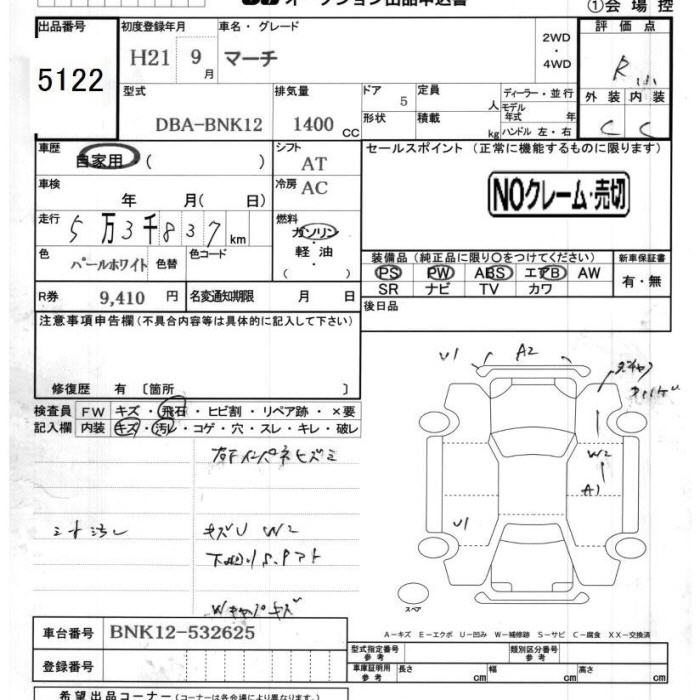 オークション出品申込書
①会 場 控
出品番号 初度登録年月 車名・グレード 2WD・4WD 評 価 点
5122 H21 9月 マーチ R
型式 排気量 ドア 定員 ディーラー・並行 外 装 内 装
DBA-BNK12 1400 CC 5 人 モデル年式 年 C C
形状 積載 kg ハンドル 左・右
車歴 自家用 ( ) シフト AT セールスポイント (正常に機能するものに限ります)
車検 年 月( 日) 冷房 AC NOクレーム・売切
走行 5万3千837 km 燃料 ガソリン・軽 油・( )
色 パールホワイト 色替 色コード
装備品 (純正品に限り○をつけてください) 新車保証書
PS PW ABS エアB AW 有・無
SR ナビ TV カワ
R券 9,410 円 名変通知期限 月 日 後日品
注意事項申告欄 (不具合内容等は具体的に記入して下さい)
修復歴 有 〔箇所 〕
検査員 FW キズ・飛石・ヒビ割・リペア跡・×要
記入欄 内装 キズ・汚レ・コゲ・穴・スレ・キレ・破レ
U1 A2
W2
A1
U1
キズU W2
スペア
A-キズ E-エクボ U-凹み W-補修跡 S-サビ C-腐食 XX-交換済
車台番号 BNK12-532625
登録番号
型式指定番号 参考 類別区分番号 参考
車庫証明用 参考 長さ cm 幅 cm 高さ cm
希望出品コーナー (コーナーは各会場により異なります。)